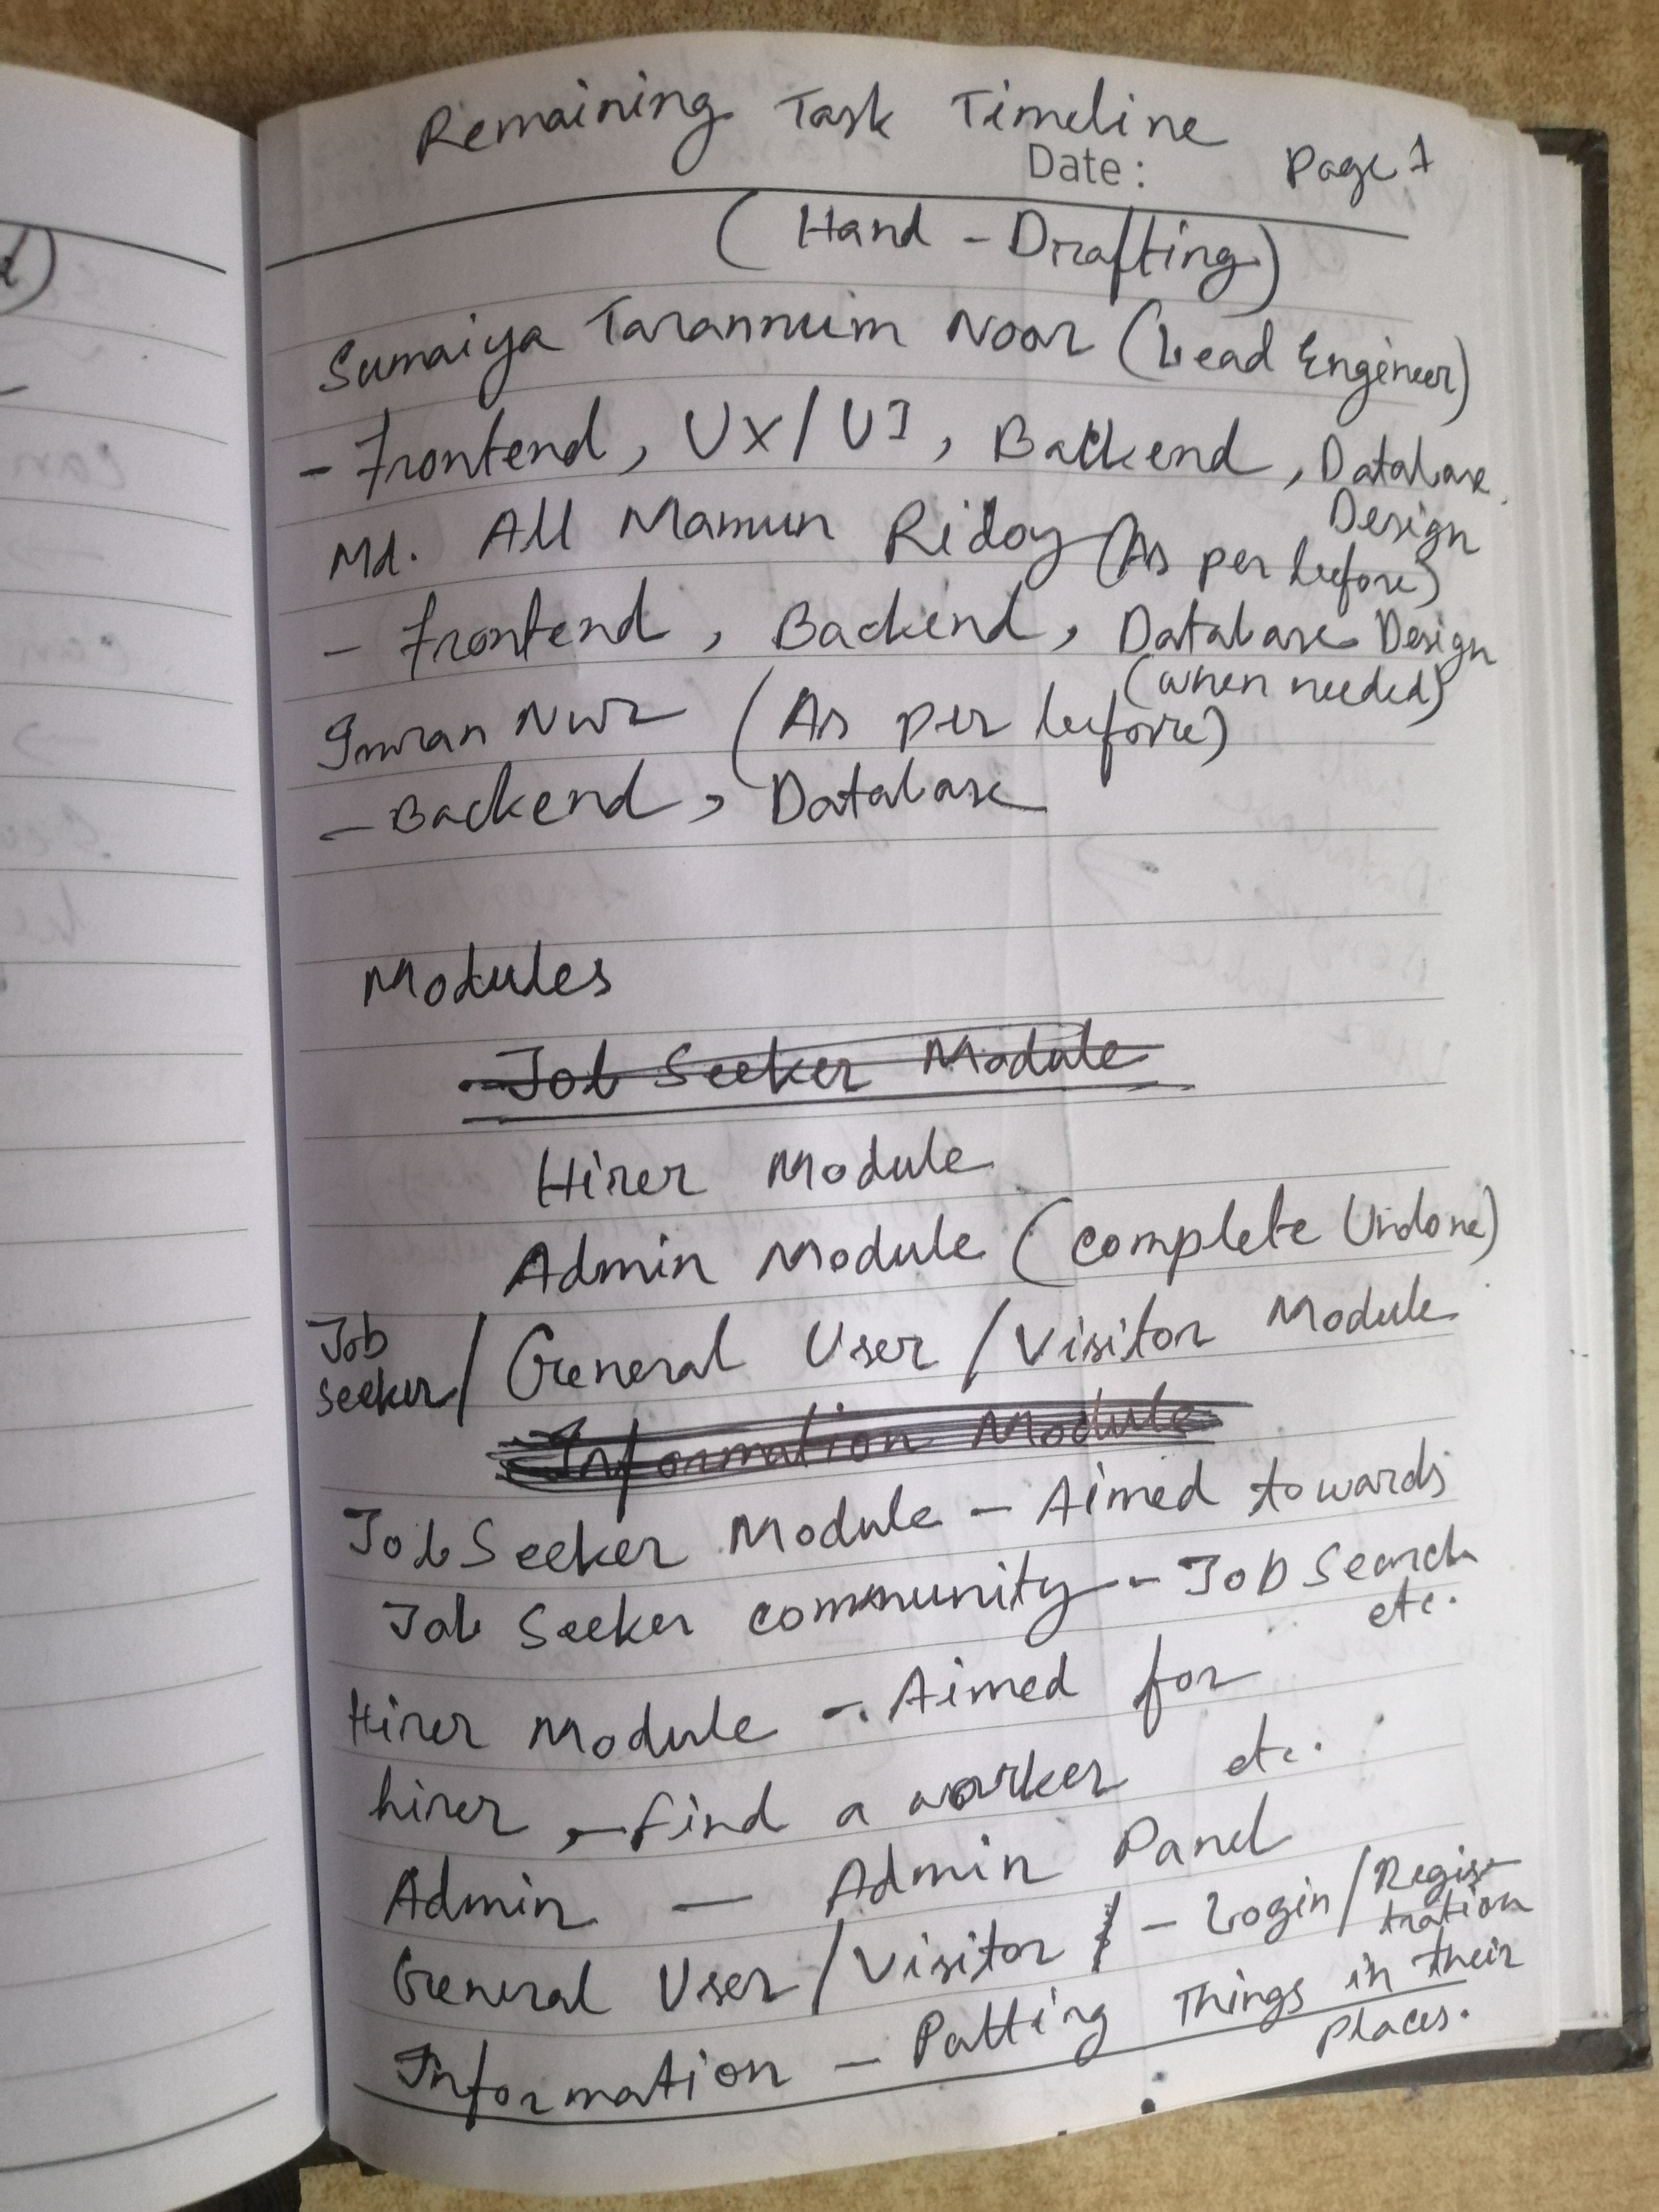 Remaining Task Timeline
Date: Page 1
(Hand-Drafting)
Sumaiya Tarannum Noor (Lead Engineer)
- Frontend, UX/UI, Backend, Database Design
Md. All Mamun Ridoy (As per before)
- Frontend, Backend, Database Design (when needed)
Imran Nur (As per before)
- Backend, Database
Modules
Job Seeker Module
Hirer Module
Admin Module (Complete Undone)
Job Seeker / General User / Visitor Module
Information Module
Job Seeker Module - Aimed towards
Job Seeker community - Job Search etc.
Hirer Module - Aimed for
hirer, - find a worker etc.
Admin - Admin Panel
General User / Visitor - Login / Registration
Information - Putting Things in their places.